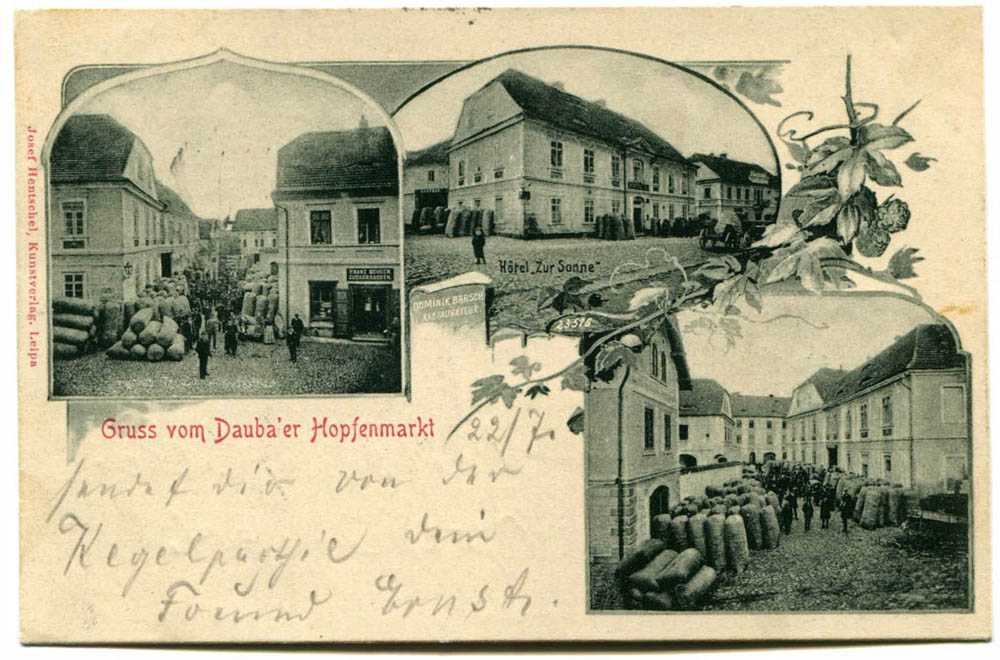 Josef Hentschel, Kunstverlag, Leipa
FRANZ
Hôtel „Zur Sonne"
DOMINIK BARSCH
RESTAURATEUR
23576
Gruss vom Dauba'er Hopfenmarkt
22/7.
sendet dir von der
Kegelparthie dein
Freund Ernst.